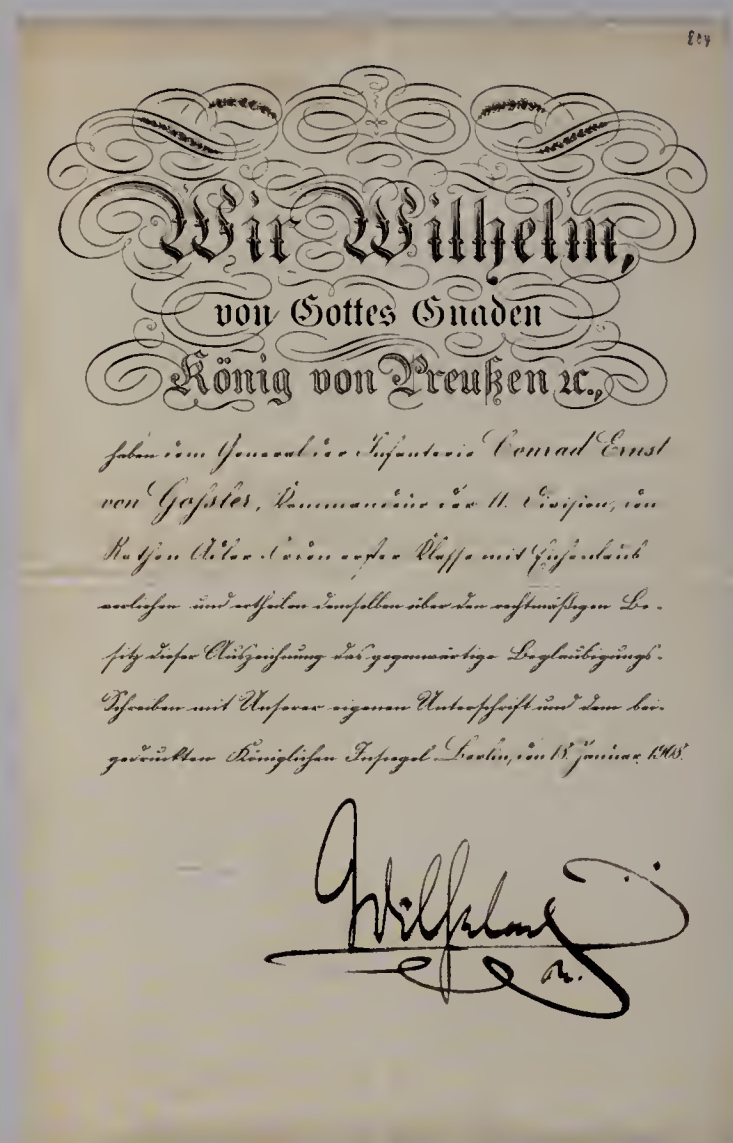 204
Wir Wilhelm,
von Gottes Gnaden
König von Preußen ꝛc.,
haben dem General der Infanterie Conrad Ernst
von Goßler, Kommandeur der 11. Division, den
Rothen Adler-Orden erster Klasse mit Eichenlaub
verliehen und ertheilen demselben über den rechtmäßigen Be-
sitz dieser Auszeichnung das gegenwärtige Beglaubigungs-
Schreiben mit Unserer eigenen Unterschrift und dem bei-
gedruckten Königlichen Insiegel. Berlin, den 18. Januar 1908.
Wilhelm
R.